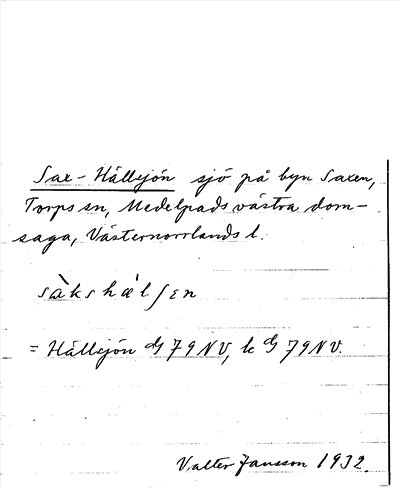 Sax-Hällsjön sjö på byn Saxen,
Torps sn, Medelpads västra dom-
saga, Västernorrlands l.
sàkshæ̀lʃɛn
= Hällsjön 79 NV, k 79 NV.
Valter Jansson 1932.